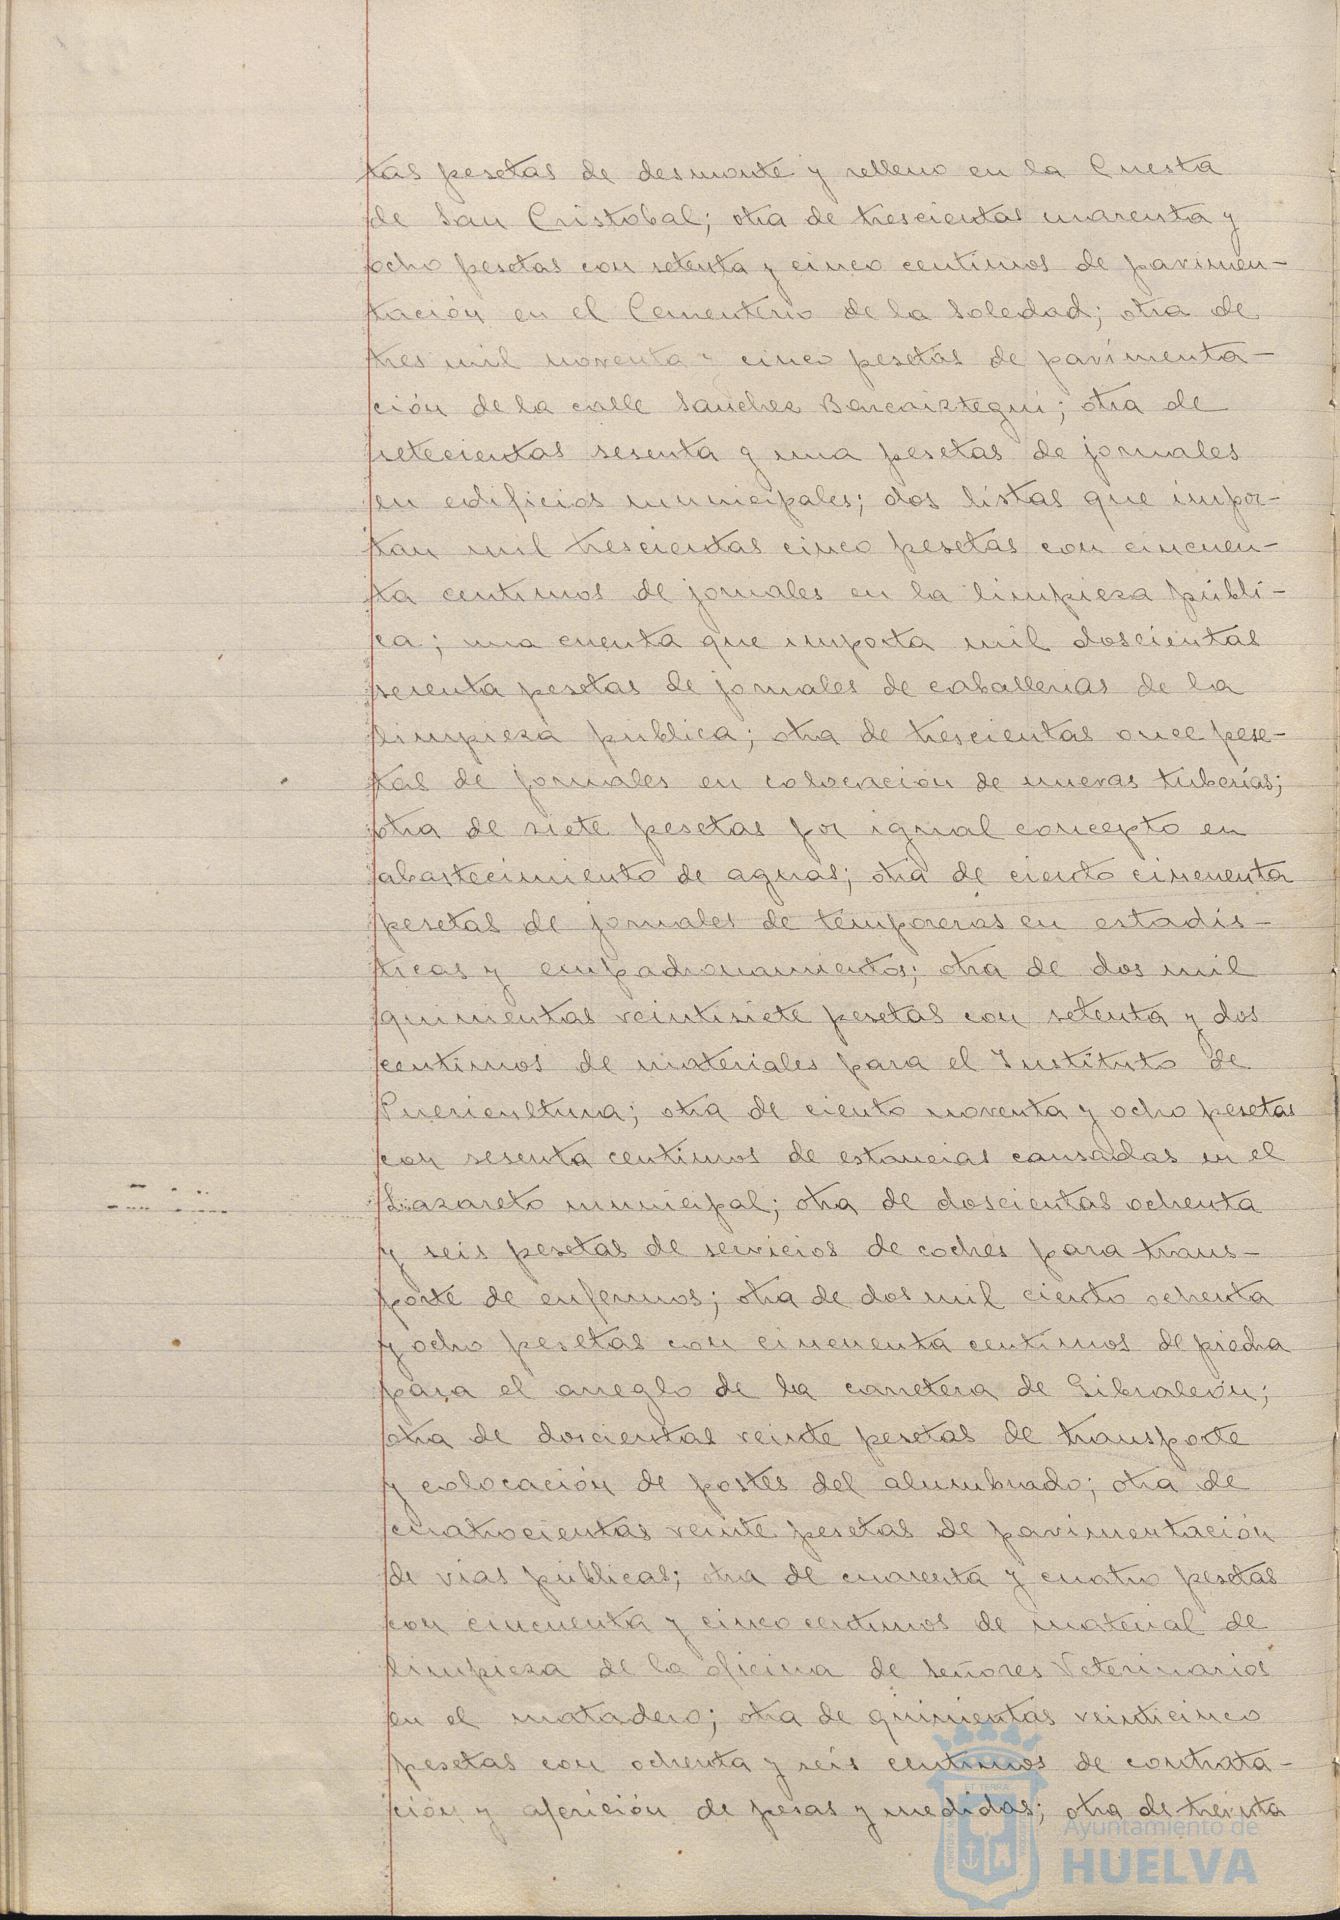 tas pesetas de desmonte y relleno en la Cuesta
de San Cristobal; otra de trescientas cuarenta y
ocho pesetas con setenta y cinco centimos de pavimen-
tación en el Cementerio de la Soledad; otra de
tres mil noventa y cinco pesetas de pavimenta-
ción de la calle Sanchez Barcaiztegui; otra de
setecientas sesenta y una pesetas de jornales
en edificios municipales; dos listas que impor-
tan mil trescientas cinco pesetas con cincuen-
ta centimos de jornales en la limpieza públi-
ca; una cuenta que importa mil doscientas
pesetas de jornales de caballerias de la
limpieza publica; otra de trescientas once pese-
tas de jornales en colocación de nuevas tuberías;
otra de siete pesetas por igual concepto en
abastecimiento de aguas; otra de ciento cincuenta
pesetas de jornales de temporeros en estadis-
ticas y empadronamientos; otra de dos mil
quinientas veintisiete pesetas con setenta y dos
centimos de materiales para el Instituto de
Puericultura; otra de ciento noventa y ocho pesetas
con sesenta centimos de estancias causadas en el
Lazareto municipal; otra de doscientas ochenta
y seis pesetas de servicios de coches para trans-
porte de enfermos; otra de dos mil ciento ochenta
y ocho pesetas con cincuenta centimos de piedra
para el arreglo de la carretera de Gibraleón;
otra de doscientas veinte pesetas de transporte
y colocación de postes del alumbrado; otra de
cuatrocientas veinte pesetas de pavimentación
de vias públicas; otra de cuarenta y cuatro pesetas
con cincuenta y cinco centimos de material de
limpieza de la oficina de señores Veterinarios
en el matadero; otra de quinientas veinticinco
pesetas con ochenta y seis centimos de contrata-
ción y aferición de pesas y medidas; otra de treinta
Ayuntamiento de
HUELVA